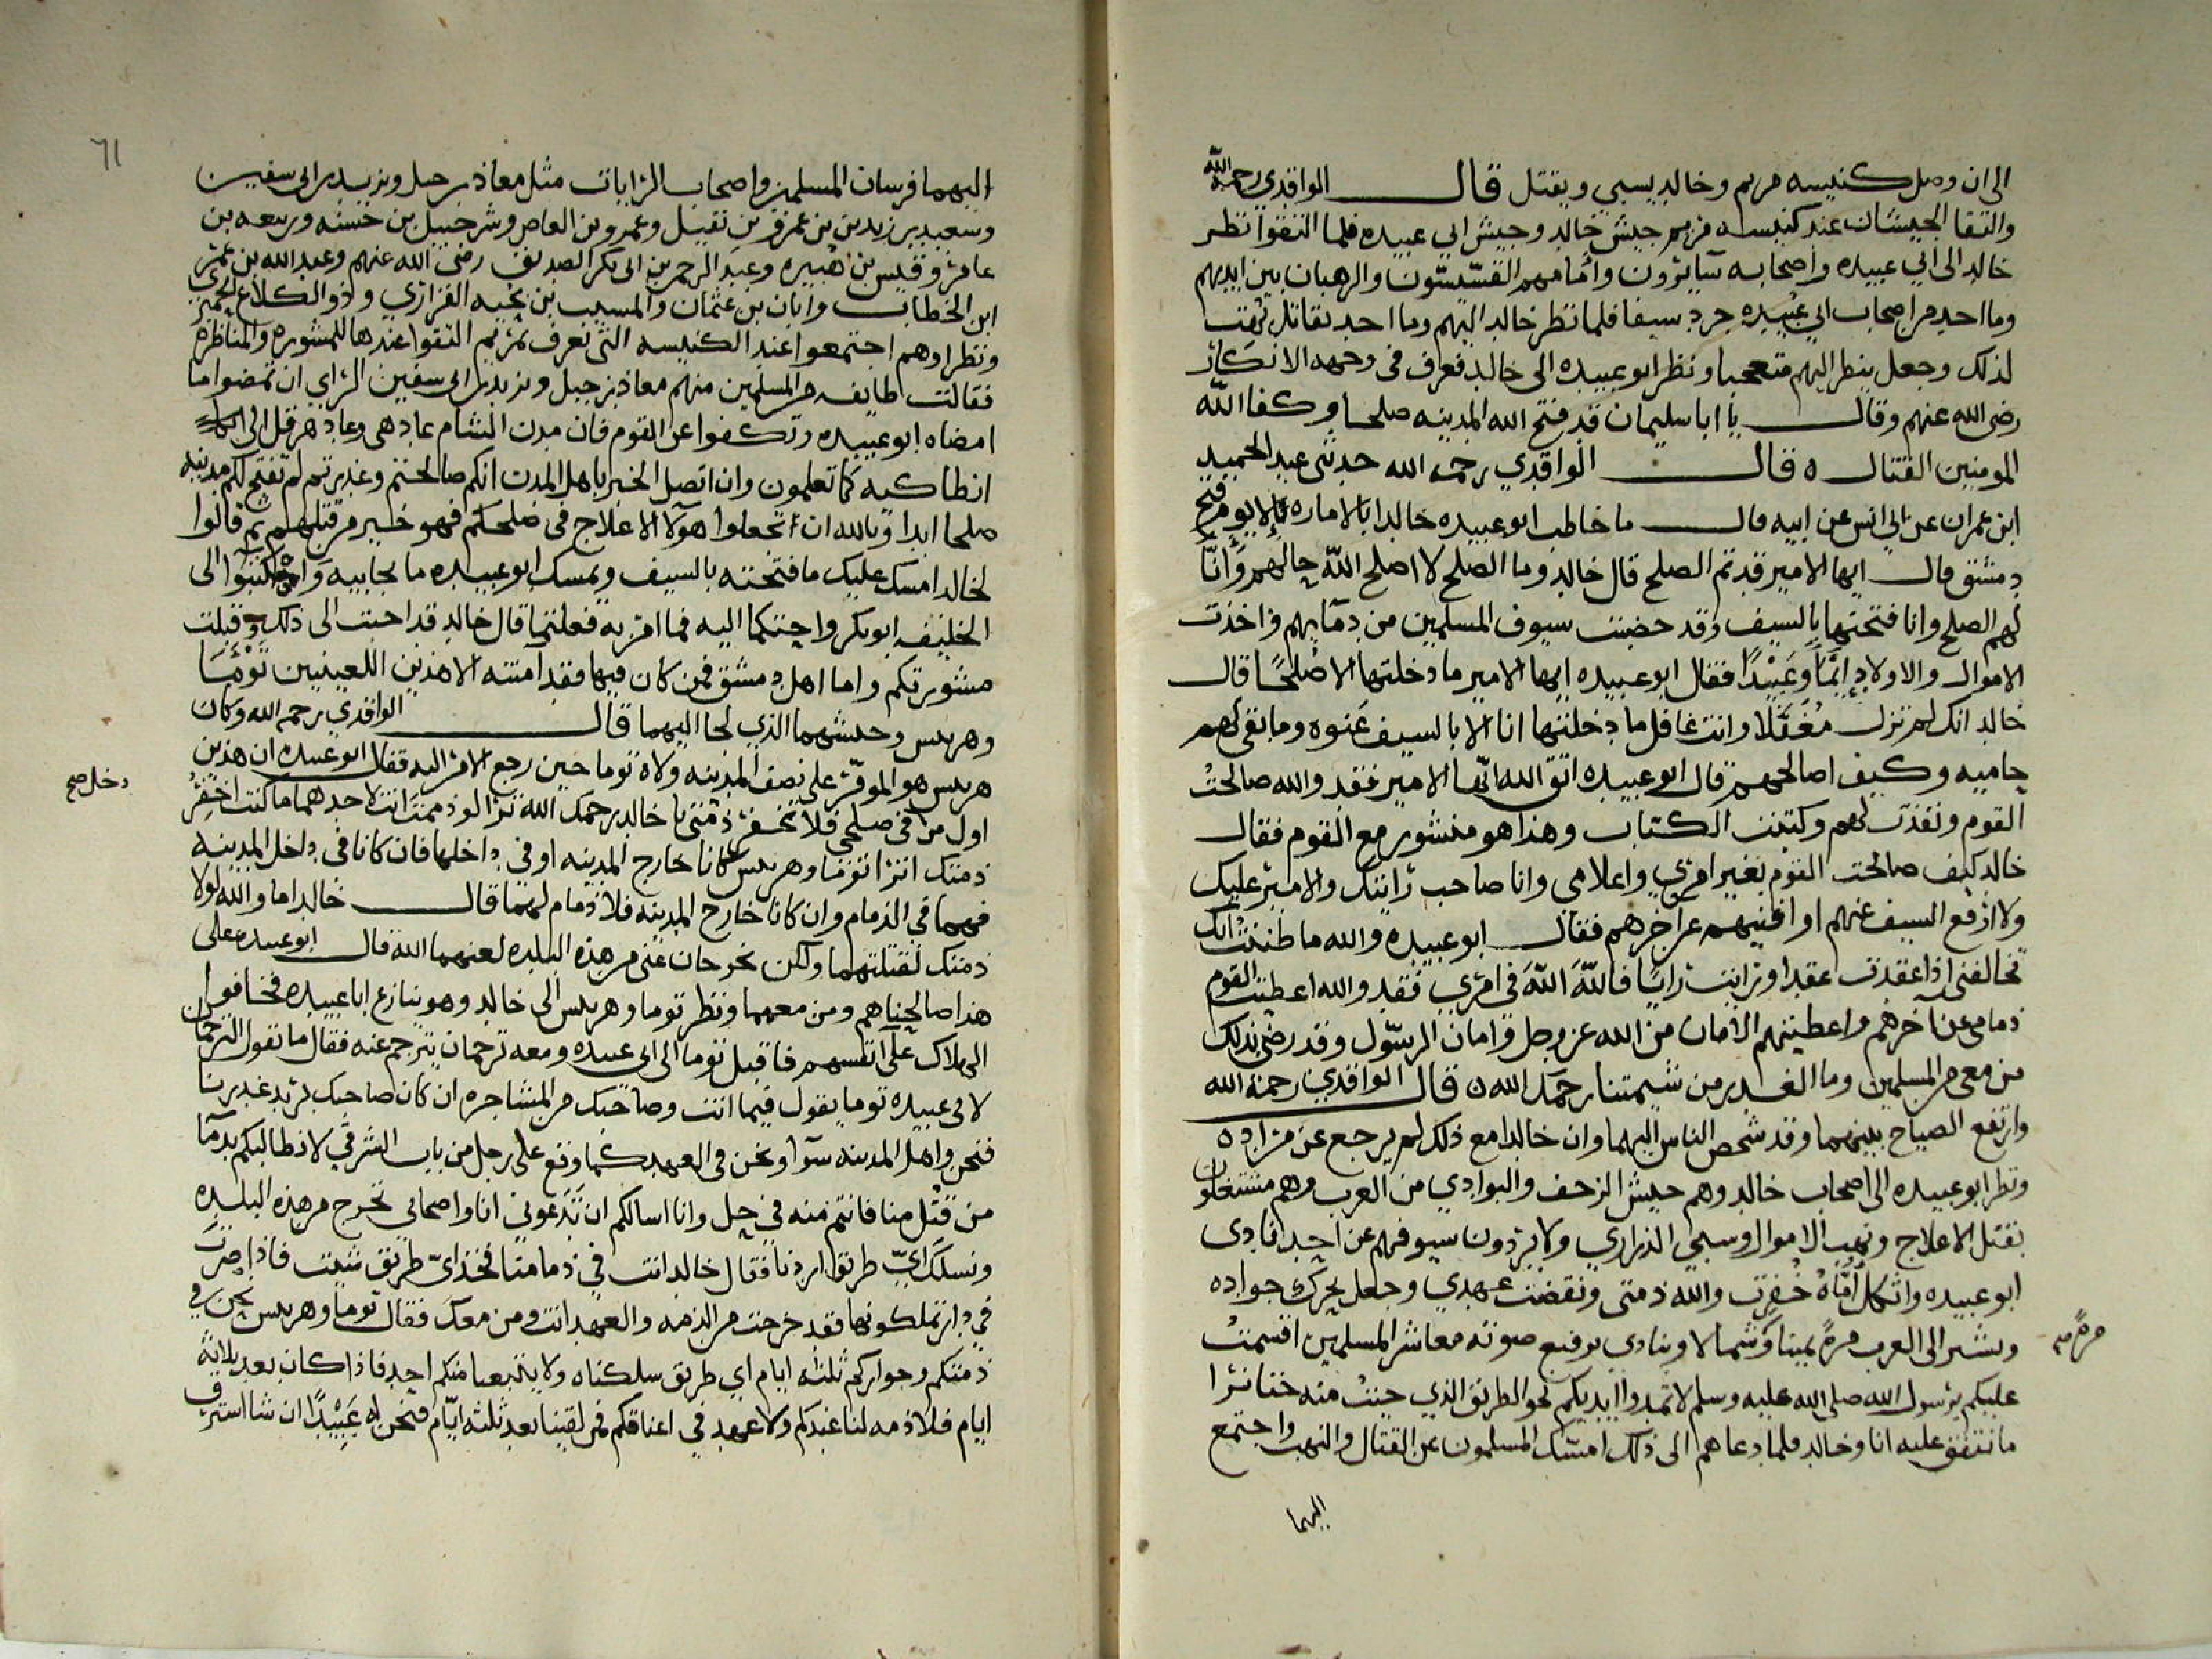 الى ان وصل كنيسه مريم وخالد يسبي ويقتل قال الواقدي رحمه الله
والتقا الجيشان عند كنيسه مريم جيش خالد وجيش ابي عبيده فلما التقوا نظر
خالد الى ابي عبيده واصحابه سايرون وامامهم القسيسون والرهبان بين ايديهم
وما احد من اصحاب ابي عبيده جرد سيفا فلما نظر خالد اليهم وما احد يقاتل بهت
لذلك وجعل ينظر اليهم متعجبا ونظر ابو عبيده الى خالد فعرف في وجهه الانكار
رضي الله عنهم وقال يا ابا سليمان قد فتح الله المدينه صلحا وكفا الله
المومنين القتال ه قال الواقدي رحمه الله حدثني عبد الحميد
ابن عمران عن ابي انس عن ابيه قال ما خاطب ابو عبيده خالدا بالاماره الا يوم فتح
دمشق قال ايها الامير قد تم الصلح قال خالد وما الصلح لا اصلح الله حالهم وانا
لهم الصلح وانا فتحتها بالسيف وقد خضبت سيوف المسلمين من دمايهم واخذت
الاموال والاولاد اِمَّاً وَعَبيْدًا فقال ابو عبيده ايها الامير ما دخلتها الا صُلحًا قال
خالد انك لم تزل مُغَفَّلا وانت غافل ما دخلتها انا الا بالسيف عَنوه وما بقي لهم
حاميه وكيف اصالحهم قال ابو عبيده اتق الله ايّها الامير فقد والله صالحتُ
القوم ونفذت لهم وكتبت الكتاب وهذا هو منشور مع القوم فقال
خالد كيف صالحت القوم بغير امري واعلامي وانا صاحب رايتك والامير عليك
ولا ارفع السيف عنهم او افنيهم عن اخرهم فقال ابو عبيده والله ما ظننت انك
تخالفني اذا عقدت عقدا ورايت رايًا فاللهَ اللهَ في امري فقد والله اعطيت القوم
ذمامي عن آخرهم واعطيتهم الامان من الله عز وجل وامان الرسول وقد رضي بذلك
من معي من المسلمين وما الغدر من شيمتنا رحمك الله ه قال الواقدي رحمة الله
وارتفع الصياح بينهما وقد شخص الناس اليهما وان خالدا مع ذلك لم يرجع عن مراده
ونظر ابو عبيده الى اصحاب خالد وهم جيش الزحف والبوادي من العرب وهم مشتغلون
بقتل الاعلاج ونهب الاموال وسبي الذراري ولا يردون سيوفهم عن احد فنادى
ابو عبيده واثكل اُمّاهُ خُفِرت والله ذمتي ونقضت عهدي وجعل يحرك جواده
ويشير الى العرب مرةً يمينا وَشمالا وينادي برفيع صوته معاشر المسلمين اقسمتُ
مرةً صح
عليكم برسول الله صلى الله عليه وسلم لا تمدوا ايديكم نحو الطريق الذي جيتُ منه حتى نرا
ما نتفق عليه انا وخالد فلما دعاهم الى ذلك امسك المسلمون عن القتال والنهب واجتمع
اليهما
٦١
اليهما فرسان المسلمين واصحاب الرايات مثل معاذ بن جبل ويزيد بن ابي سفين
وسعيد بن زيد بن عمرو بن نفيل وعمرو بن العاص وشرحبيل بن حسنه وربيعه بن
عامر وقيس بن هبيره وعبد الرحمن بن ابي بكر الصديق رضي الله عنهم وعبد الله بن عمر
ابن الخطاب وابان بن عثمان والمسيب بن نجبه الفزاري وذو الكلاع الحميري
ونظراوهم اجتمعوا عند الكنيسه التي تعرف بمريم التقوا عندها للمشوره والمناظره
فقالت طايفه من المسلمين منهم معاذ بن جبل ويزيد بن ابي سفين الراي ان تمضوا ما
امضاه ابو عبيده وتكفوا عن القوم فان مدن الشام عاد هي وعاد هرقل الى
انطاكيه كما تعلمون وان اتصل الخبر باهل المدن انكم صالحتم وغدرتم لم تفتح لكم مدينه
صلحا ابدا وبالله ان تجعلوا هولا الاعلاج في صلحكم فهو خير من قتلهم ثم قالوا
لخالد امسك عليك ما فتحته بالسيف ويمسك ابو عبيده ما بجانبه واكتبوا الى
الخليفه ابو بكر واحتكما اليه فما امر به فعلتما قال خالد قد اجبت الى ذلك وقبلت
مشورتكم واما اهل دمشق فمن كان فيها فقد امنته الا هذين اللعينين تُوْمَا
وهربيس وجيشهما الذي لجا اليهما قال الواقدي رحمه الله وكان
هربيس هو الموقّر على نصف المدينه ولاه توما حين رجع الامر اليه فقال ابو عبيده ان هذين
دخل صح
اول من في صلحي فلا تخفر ذمتي يا خالد رحمك الله ترا لو ذممت انت لاحدهما ما كنت اخفِرُ
ذمتك انترا توما وهربيس كانا خارج المدينه او في داخلها فان كانا في داخل المدينه
فهما في الذمام وان كانا خارج المدينه فلا ذمام لهما قال خالد اما والله لولا
ذمتك لقتلتهما ولكن يخرجان عني من هذه البلده لعنهما الله قال ابو عبيده على
هذا صالحناهم ومن معهما ونظر توما وهربيس الى خالد وهو ينازع ابا عبيده فخافوا
الهلاك على انفسهم فاقبل توما الى ابي عبيده ومعه ترجمان يترجم عنه فقال ما تقول الترجمان
لابي عبيده توما يقول فيما انت وصاحبك من المشاجره ان كان صاحبك يريد غدرنا
فنحن واهل المدينه سوآ ونحن في العهد كما وقع على رجل من باب الشرقي لا نطالبكم بدمآ
من قُتل منا فانتم منه في حِل وانا اسالكم ان تَدَعوني انا واصحابي نخرج من هذه البلده
ونسلك ايّ طريق اردنا فقال خالد انت في ذمامنا فخذ ايّ طريق شيت فاذا صرتَ
في دار تملكونها فقد خرجت من الذمه والعهد انت ومن معك فقال توما وهربيس نحن في
ذمتكم وجواركم ثلثه ايام اي طريق سلكناه ولا يتبعنا منكم احد فاذا كان بعد ثلاثة
ايام فلا ذمه لنا عندكم ولا عهد في اعناقكم فمن لقينا بعد ثلثه ايّام فنحن له عَبِيْدًا ان شا استرق